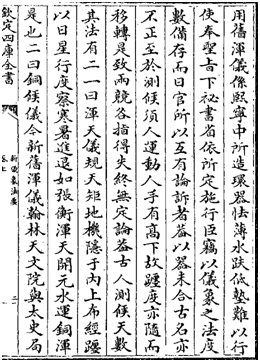 用舊渾儀係熙寧中所造環器怯薄水趺低墊難以行
使奉聖旨下祕書省依所定施行臣竊以儀象之法度
數備存而日官所以互有論訴者蓋以器未合古名亦
不正至於測候須人運動人手有高下故躔度亦隨而
移轉是致兩競各指得失終無定論蓋古人測候天數
其法有二一曰渾天儀規天矩地機隱于內上布經躔
以日星行度察寒暑進退如張衡渾天開元水運銅渾
是也二曰銅候儀今新舊渾儀翰林天文院與太史局
欽定四庫全書
新儀象法要
卷上
二